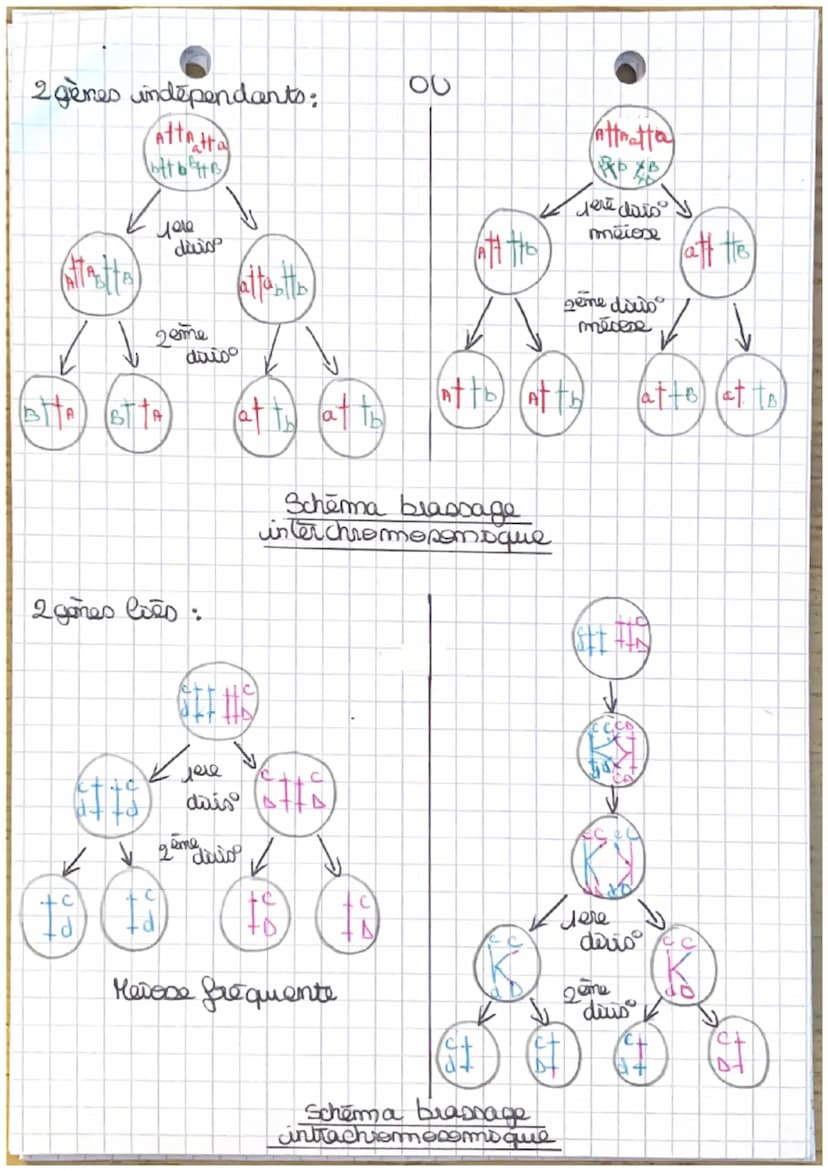 2 gènes indépendants :
OU
A A a a
b b B B
1ère
divis°
A A B B
a a b b
2ème
divis°
B A
B A
a b
a b
A A a a
1ère divis°
méiose
A b
a B
2ème divis°
méiose
A b
A b
a B
a B
Schéma brassage
interchromosomique
2 gènes liés :
c C
d D
1ère
divis°
c c
d d
C C
D D
2ème
divis°
c
d
c
d
C
D
C
D
Méiose fréquente
1ère
divis°
c C
d D
c C
d D
2ème
divis°
c
d
c
D
C
d
C
D
Schéma brassage
intrachromosomique